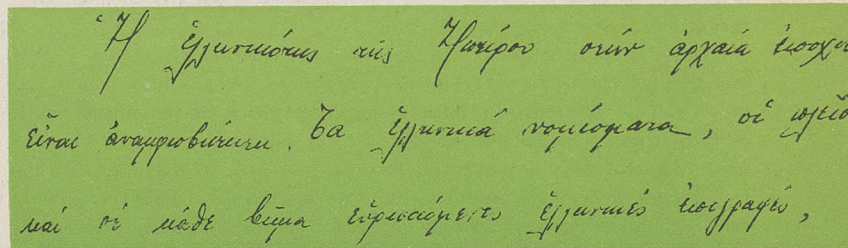 Ἡ ἑλληνικότης τῆς Ἠπείρου στήν ἀρχαία ἐποχή
εἶναι ἀναμφισβήτητη. Τα ἑλληνικά νομίσματα, οἱ
καί σέ κάθε βῆμα εὑρισκόμενες ἑλληνικές ἐπιγραφές,